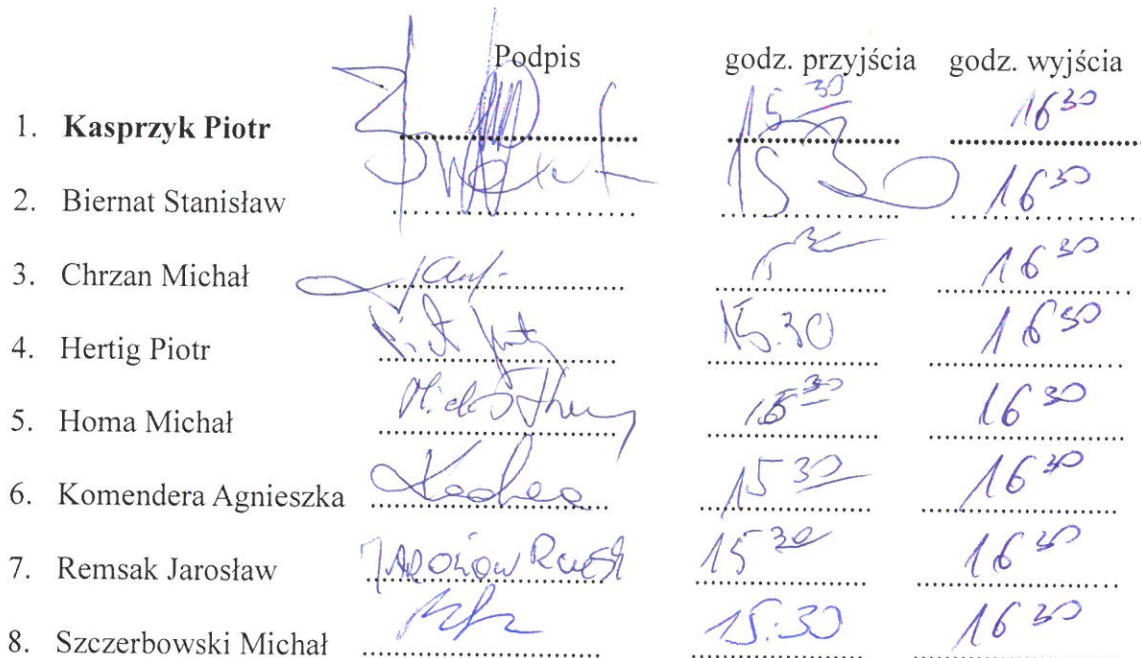 Podpis godz. przyjścia godz. wyjścia
1. Kasprzyk Piotr 15 30 16 30
2. Biernat Stanisław 15 30 16 30
3. Chrzan Michał 16 30
4. Hertig Piotr 15.30 16 30
5. Homa Michał 15 30 16 30
6. Komendera Agnieszka 15 30 16 30
7. Remsak Jarosław 15 30 16 30
8. Szczerbowski Michał 15:30 16 30